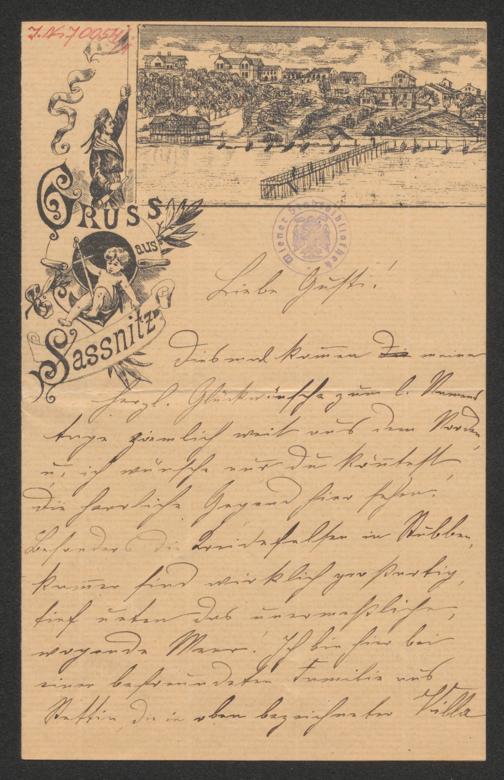 J.N. 70054
GRUSS
aus
Sassnitz
Wiener Stadtbibliothek
Liebe Gusti!
Diesmal kommen die meine
herzl. Glückwünsche zum l. Namens
tage ziemlich weit aus dem Norden,
u. ich wünsche nur du könntest
die herrliche Gegend hier sehen.
Besonders die Kreidefelsen in Stubben,
kammer sind wirklich großartig,
tief unten das unermeßliche,
wogende Meer! Ich bin hier bei
einer befreundeten Familie aus
Stettin die in oben bezeichneter Villa